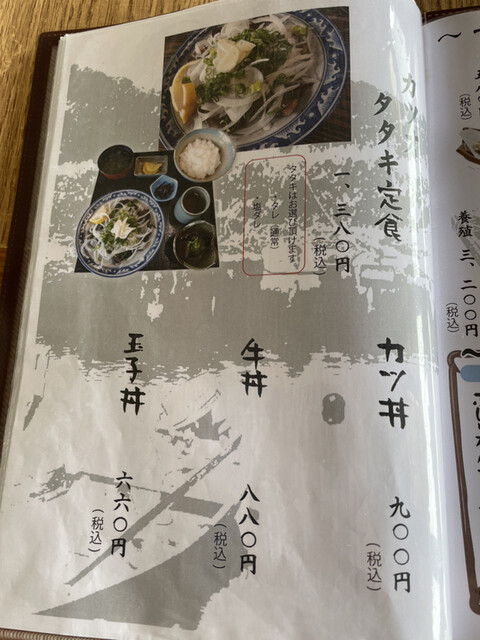 〜
(税込)
養殖 三、二〇〇円
(税込)
〜
カツ
タタキ定食
一、三八〇円
(税込)
タタキはお選び頂けます。
・タレ（通常）
・塩ダレ
カツ丼
九〇〇円
(税込)
牛丼
八八〇円
(税込)
玉子丼
六六〇円
(税込)